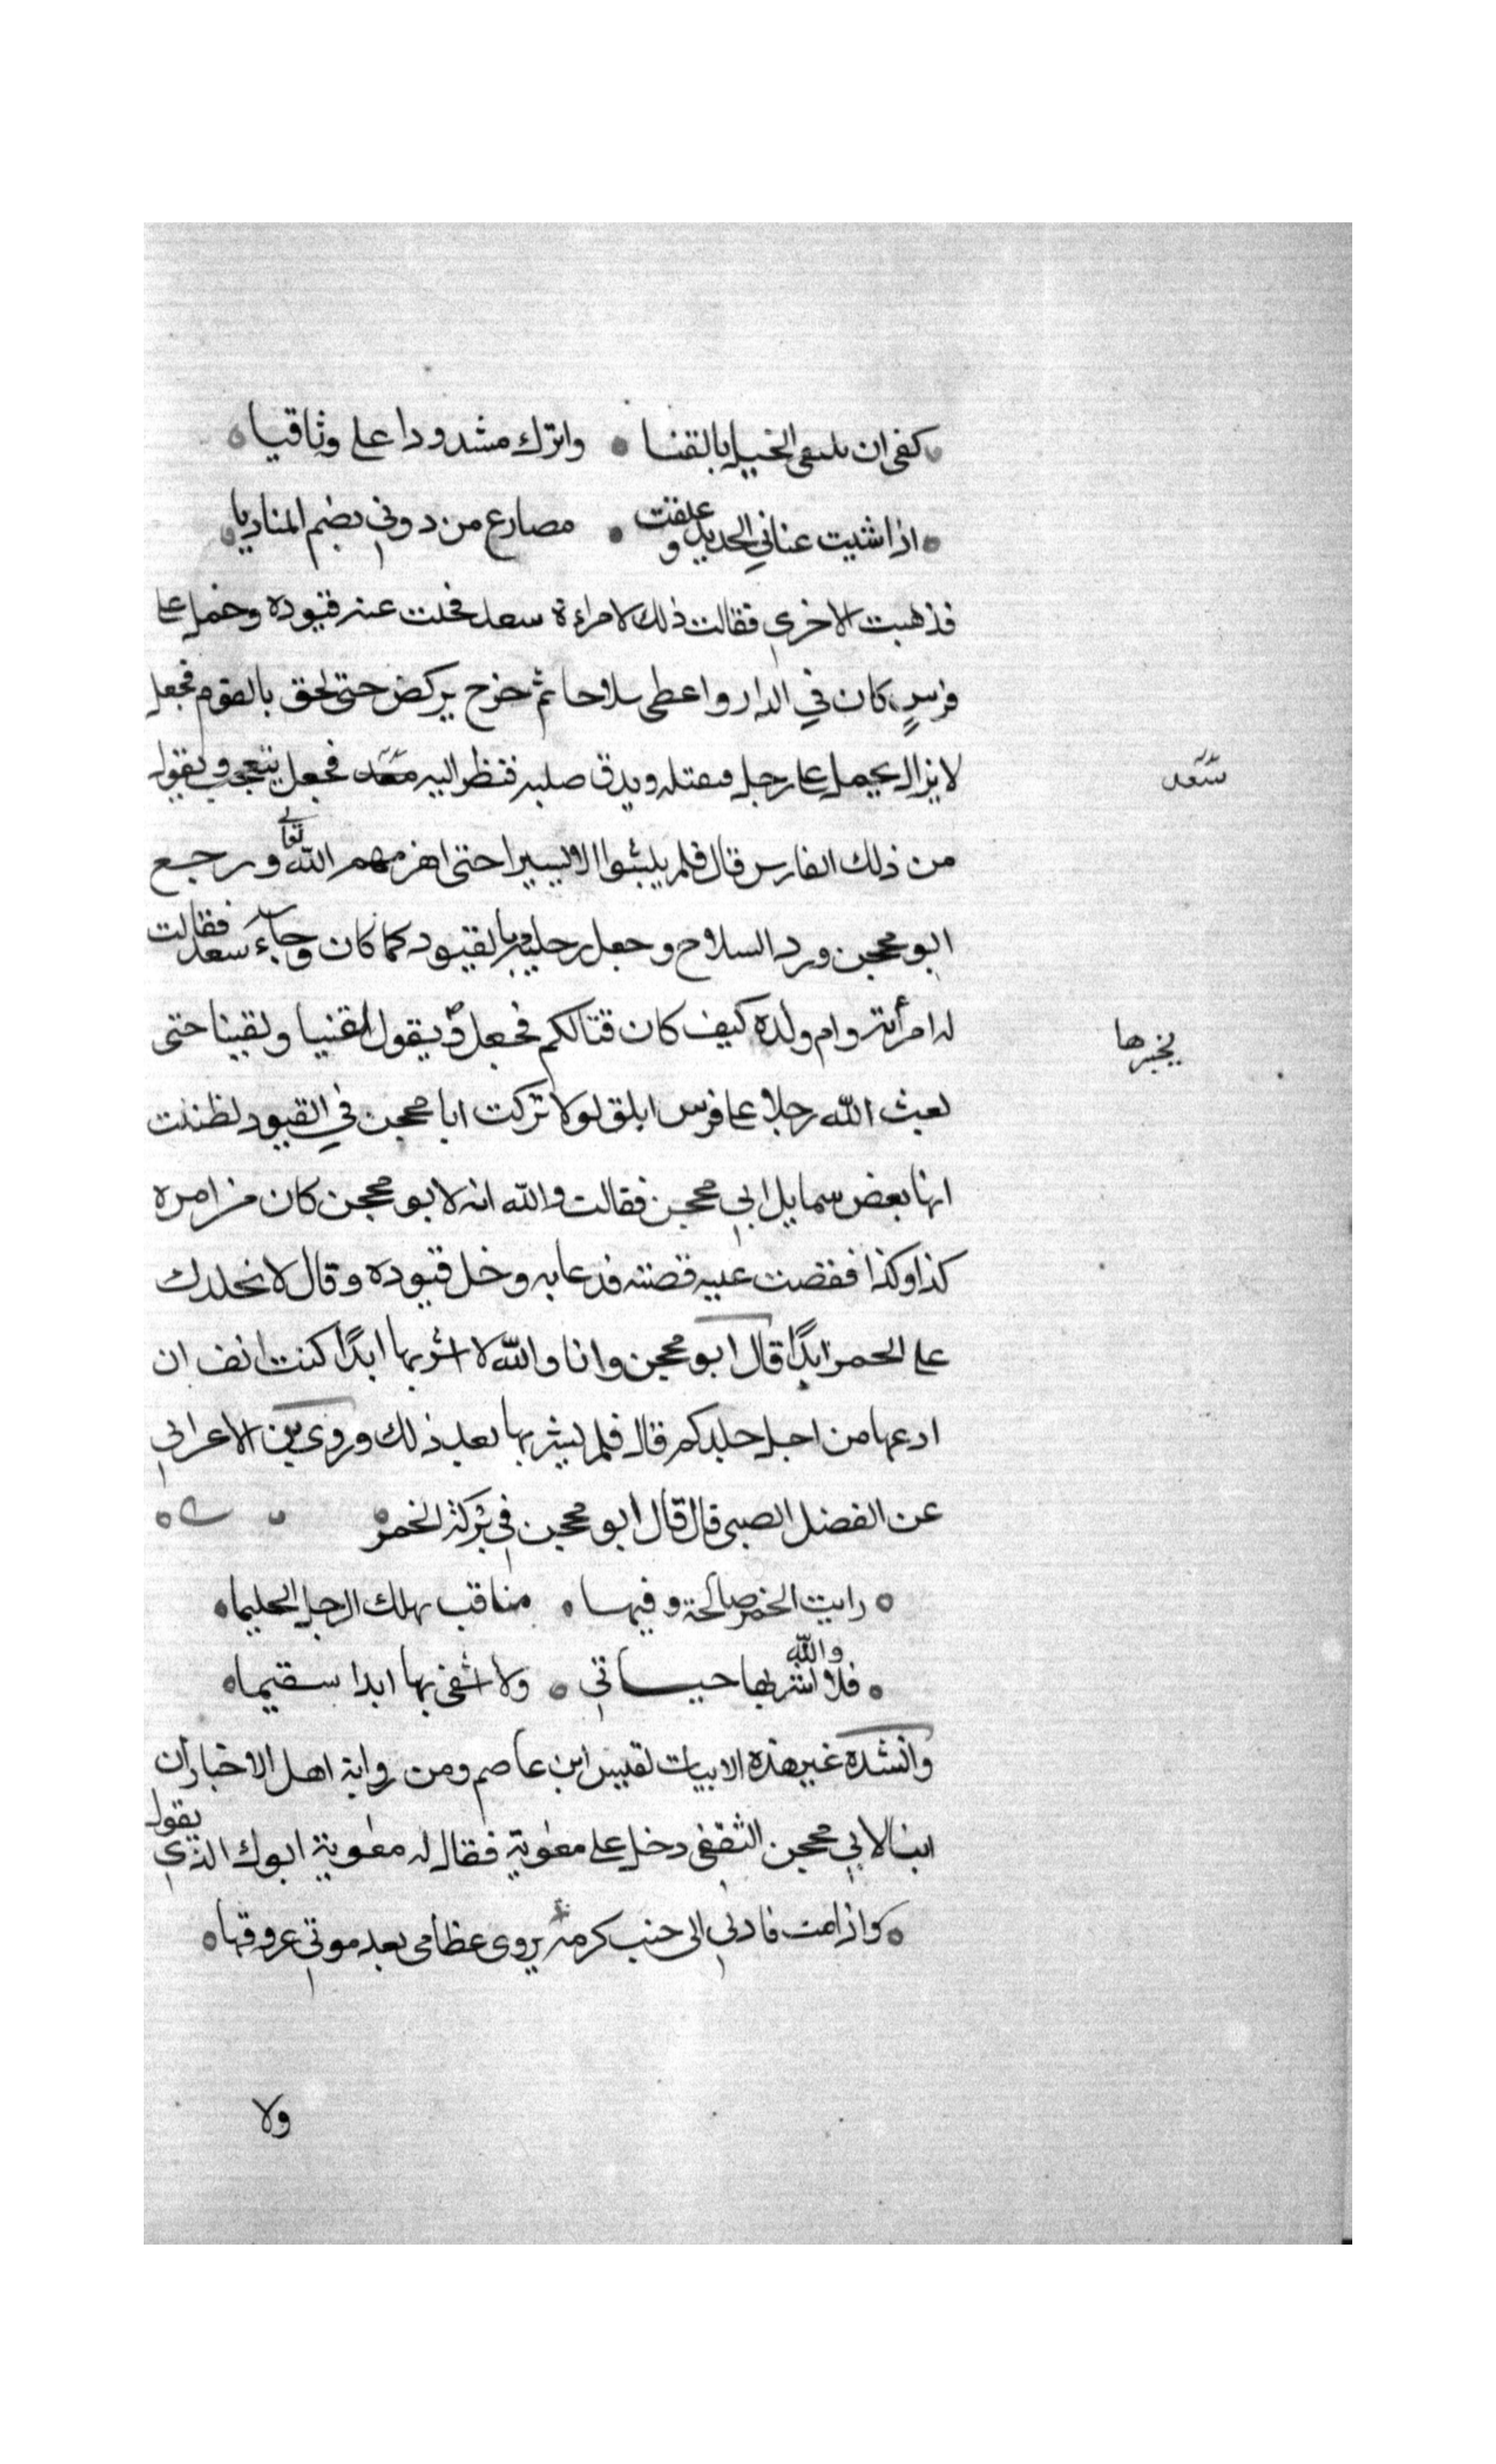 كفى ان تلتقى الخيل بالقنا واترك مشدودا على وثاقيا
اذا شيت عناني الحديد وغلقت مصارع من دوني بضم المناديا
فذهبت الاخرى فقالت ذلك لامراءة سعد فحلت عنه قيوده وحمل على
فرسٍ كان في الدار واعطى سلاحا ثم خرج يركض حتى لحق بالقوم فجعل
لا يزال يحمل على رجل فيقتله ويدق صلبه فنظر اليه فجعل يتعجب ويقول
سعد
من ذلك الفارس قال فلم يلبثوا الا يسيرا حتى اهزمهم الله تعالى ورجع
ابو محجن ورد السلاح وجعل رجليه بالقيود كما كان وجاء سعد فقالت
له امرأته وام ولده كيف كان قتالكم فجعل يقول لقينا ولقينا حتى
يخبرها
بعث الله رجلا على فرس ابلق لولا تركت ابا محجن في القيود لظننت
انها بعض سمايل ابي محجن فقالت والله انه لابو محجن كان من امره
كذا وكذا فقصت عليه قصته فدعا به وحل قيوده وقال لا نجلدك
على الخمر ابدًا قال ابو محجن وانا والله لا اشربها ابدًا كنت انف ان
ادعها من اجل جلدكم قال فلم يشربها بعد ذلك وروى بن الاعرابي
عن الفضل الضبى قال قال ابو محجن في تركه الخمر
رايت الخمر صالحة وفيها مناقب تهلك الرجل الحليما
فلا والله اشربها حياتي ولا اشفى بها ابدا سقيما
وانشده غير هذه الابيات لقيس ابن عاصم ومن رواية اهل الاخبار ان
ابنا لابي محجن الثقفي دخل على معوية فقال له معوية ابوك الذي يقول
واذا مت فادفني الى جنب كرمة يروى عظامى بعد موتي عروقها
ولا